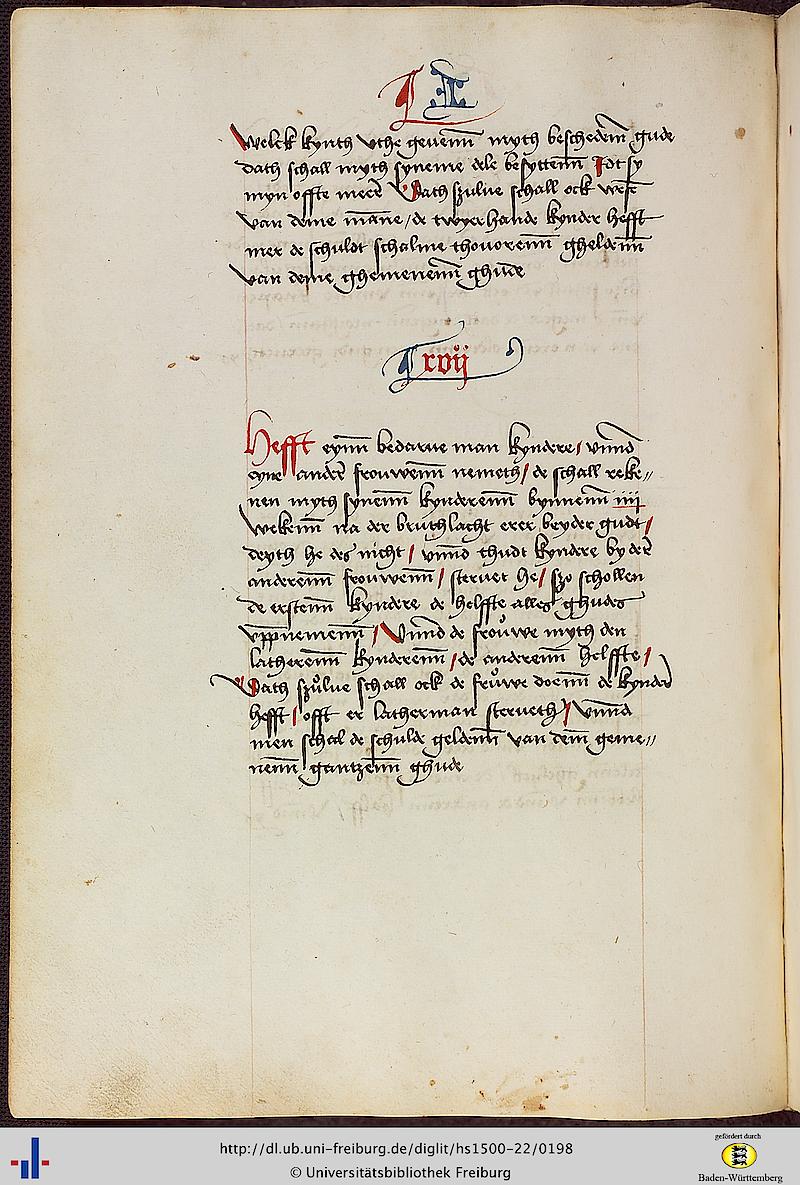 ¶ I
Welck kynth vthe geuenn̄ myth beschedem̄ gude
dath schall myth syneme dele besyttenn̄ Idt sy
myn offte meer̄ Dath szulue schall ock wesē
van deme mān̄e / de twyerhande kynder hefft
mer de schuldt schalme thouorenn̄ gheldenn̄
van deme ghemenenn̄ ghūde
¶ xvij
Hefft eynn̄ bedarue man kyndere / vnnd̄
eyne ander̄ frouwenn̄ nemeth / de schall reke〃
nen myth synenn̄ kynderenn̄ bynnenn̄ iiij
wekenn̄ na der bruthlacht erer beyder gudt /
deyth he des nicht / vnnd̄ thudt kyndere by der̄
anderenn̄ frouwenn̄ / steruet he / szo schollen
de erstenn̄ kyndere de helffte alles ghudes
vppnemenn̄ / Vnnd̄ de froůwe myth den
latherenn̄ kynderenn̄ / de anderenn̄ helffte /
Dath szůlue schall ock de frůwe doenn̄ de kynder̄
hefft / offt er latherman sterueth / Vnnd̄
men schal de schulde geldenn̄ van dem̄ geme〃
nenn̄ gantzenn̄ ghude
http://dl.ub.uni-freiburg.de/diglit/hs1500-22/0198
© Universitätsbibliothek Freiburg
gefördert durch
Baden-Württemberg